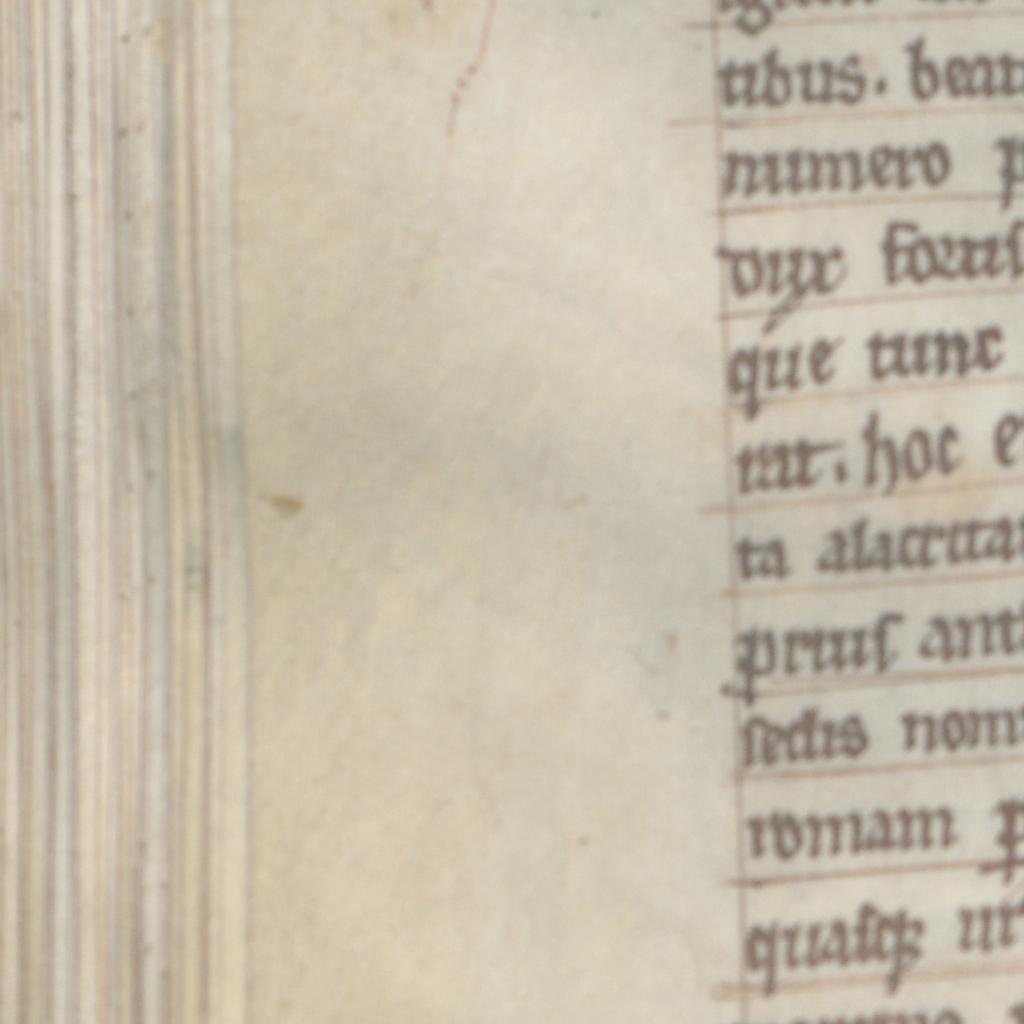 tibus. beat
numero p
vix fortis
que tunc
tur. hoc e
ta alacrita
prius ant
sectis nom
romam p
quasqꝫ ur